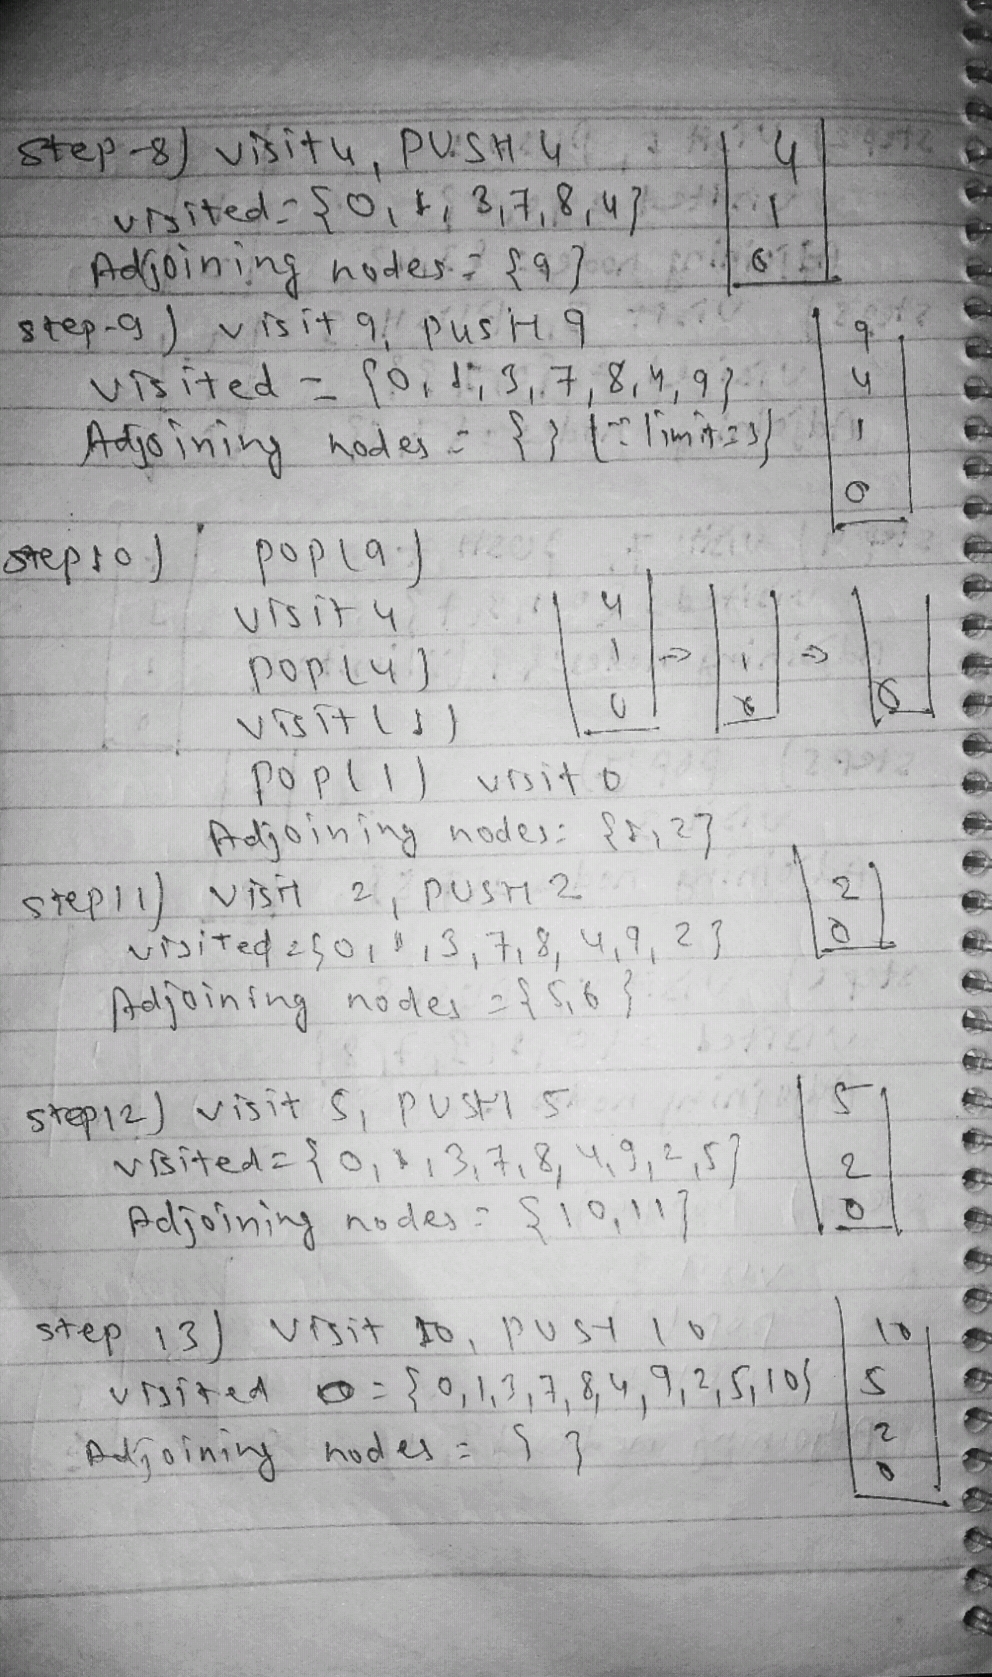 step-8) visit 4, PUSH 4
visited = {0, 1, 3,7,8,4}
Adjoining nodes = {9}
4
1
0
step-9) visit 9, PUSH 9
visited = {0, 1, 3, 7, 8, 4, 9}
Adjoining nodes = { } (∵ limit=3)
9
4
1
0
step10) pop(9)
visit 4
pop(4)
visit(1)
pop(1) visit 0
4
1
0
⇒
1
0
⇒
0
Adjoining nodes: {1, 2}
step11) visit 2, PUSH 2
visited = {0, 1, 3, 7, 8, 4, 9, 2}
Adjoining nodes = {5,6}
2
0
step12) visit 5, PUSH 5
visited = {0, 1, 3, 7, 8, 4, 9, 2, 5}
Adjoining nodes = {10, 11}
5
2
0
step 13) visit 10, PUSH 10
visited = {0,1,3,7,8,4,9,2,5,10}
Adjoining nodes = { }
10
5
2
0